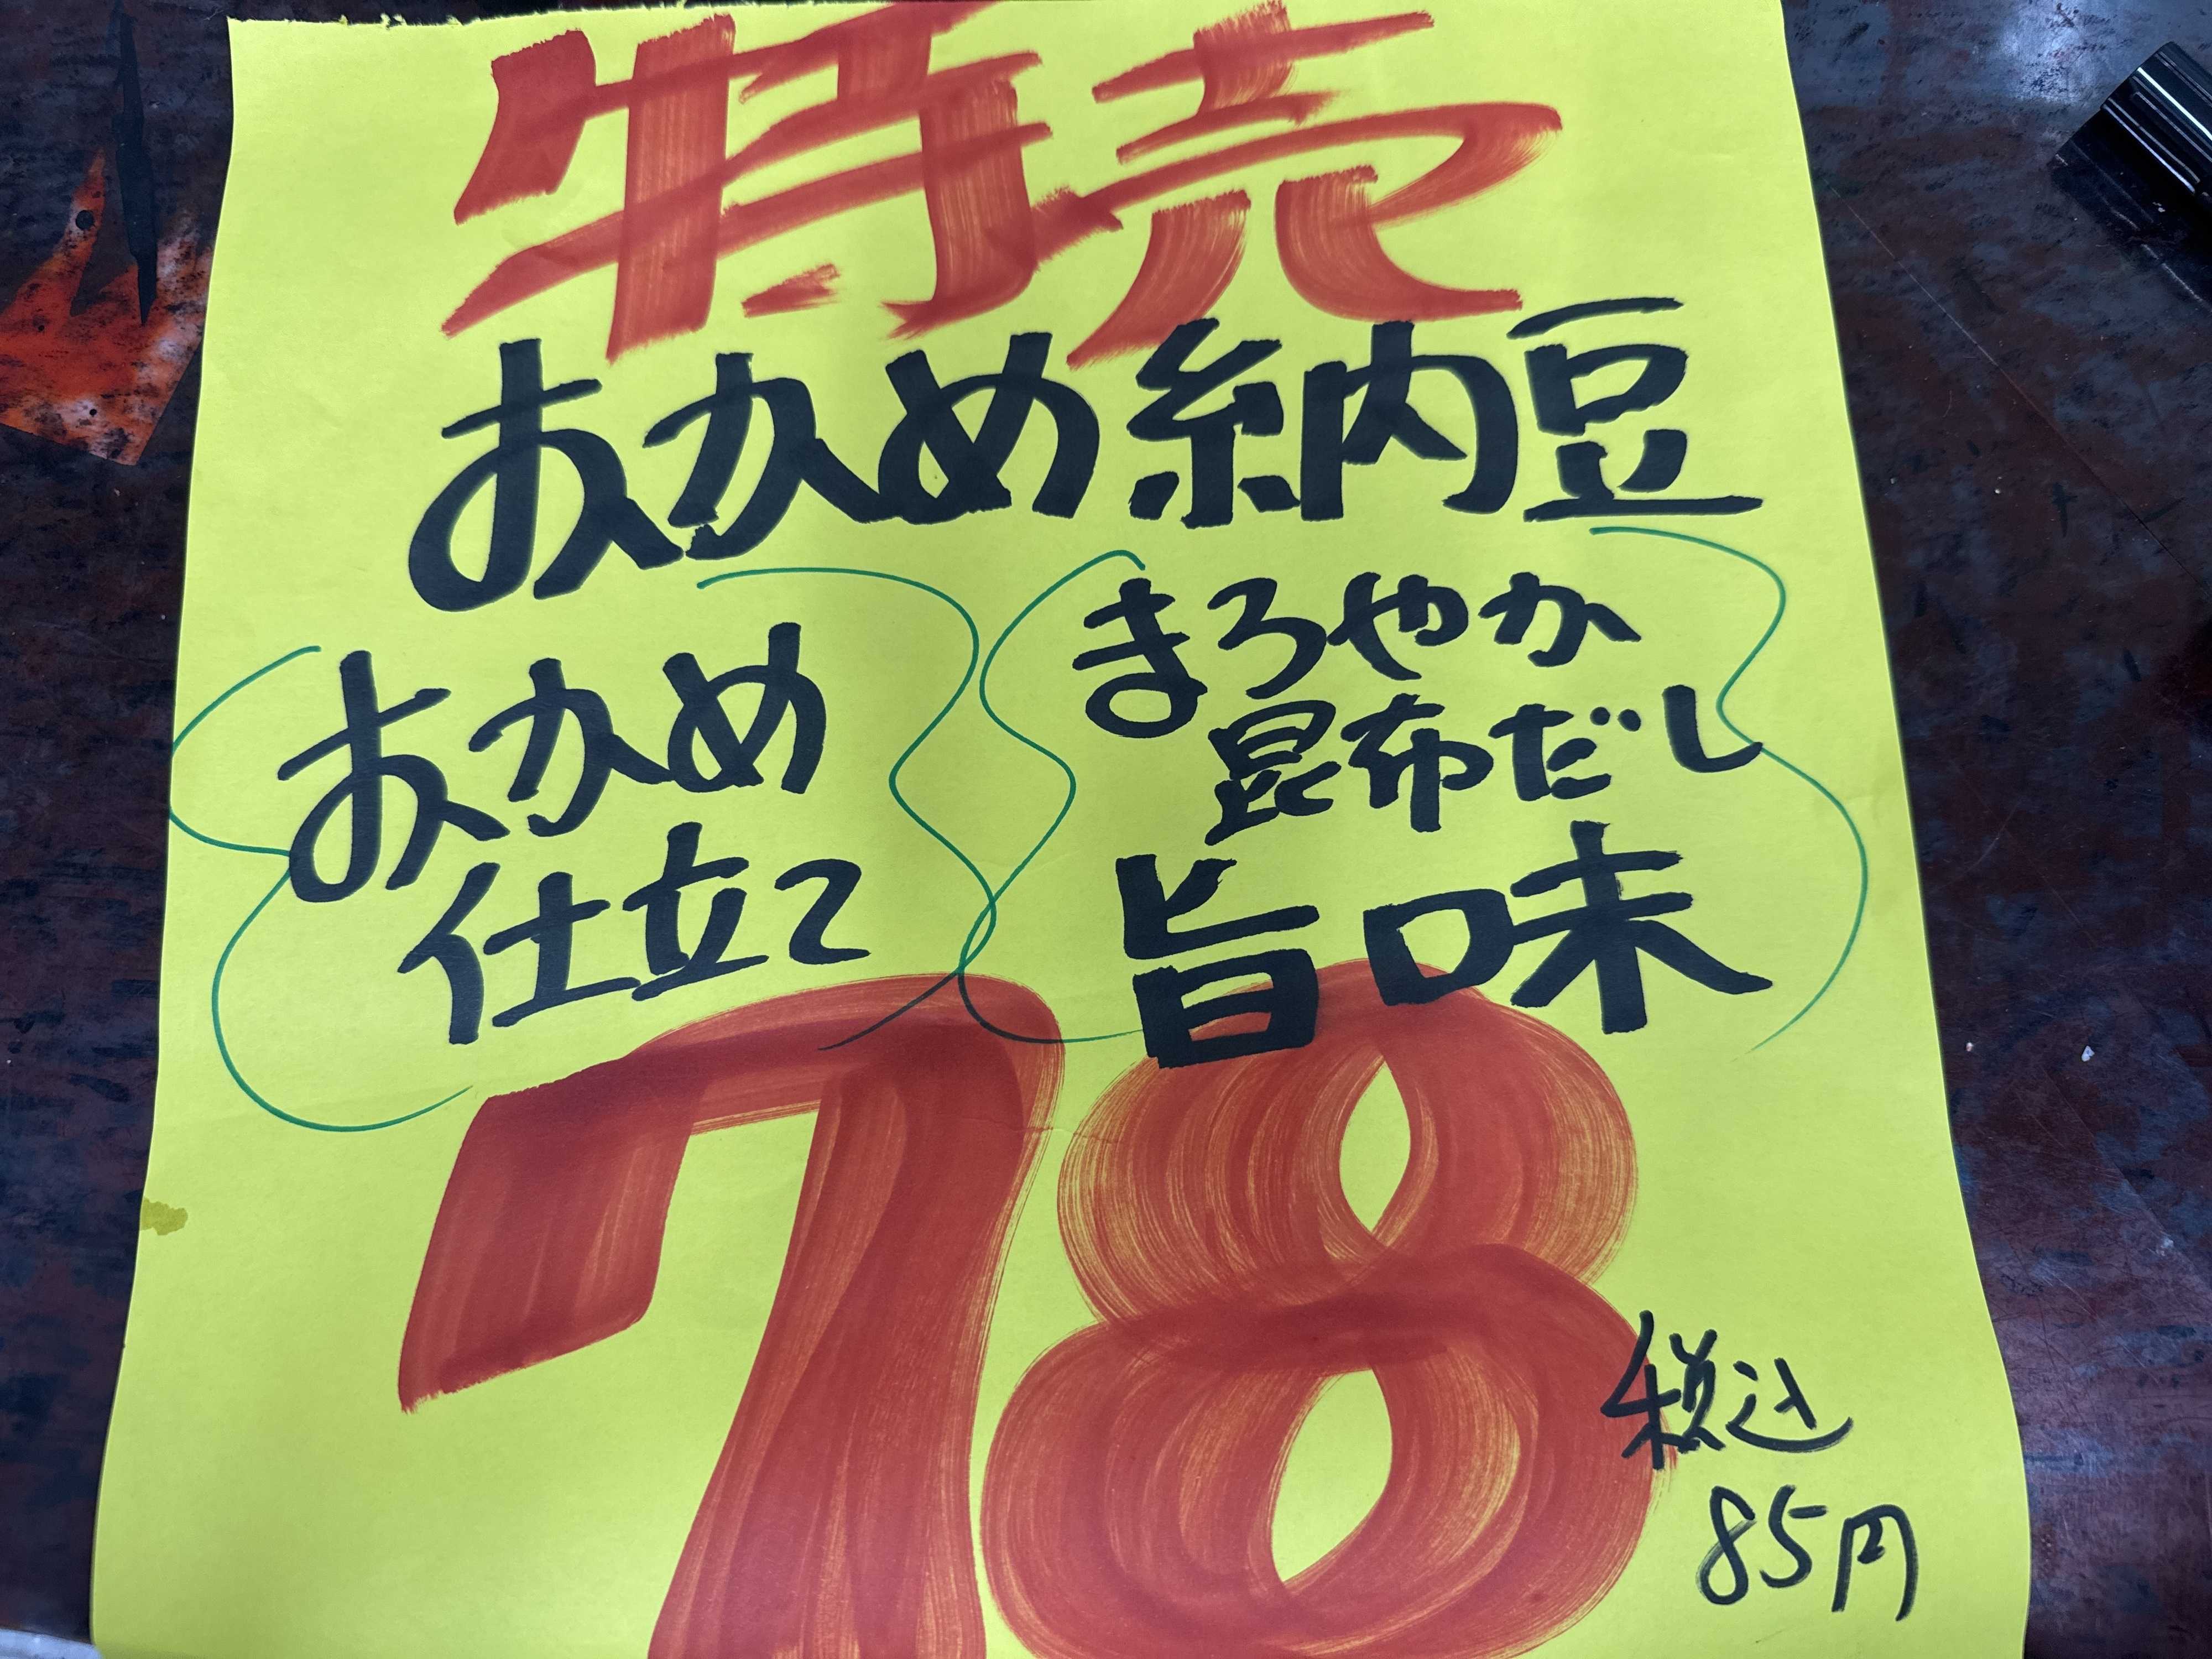 特売
おかめ納豆
おかめ
仕立て
まろやか
昆布だし
旨味
78
税込
85円